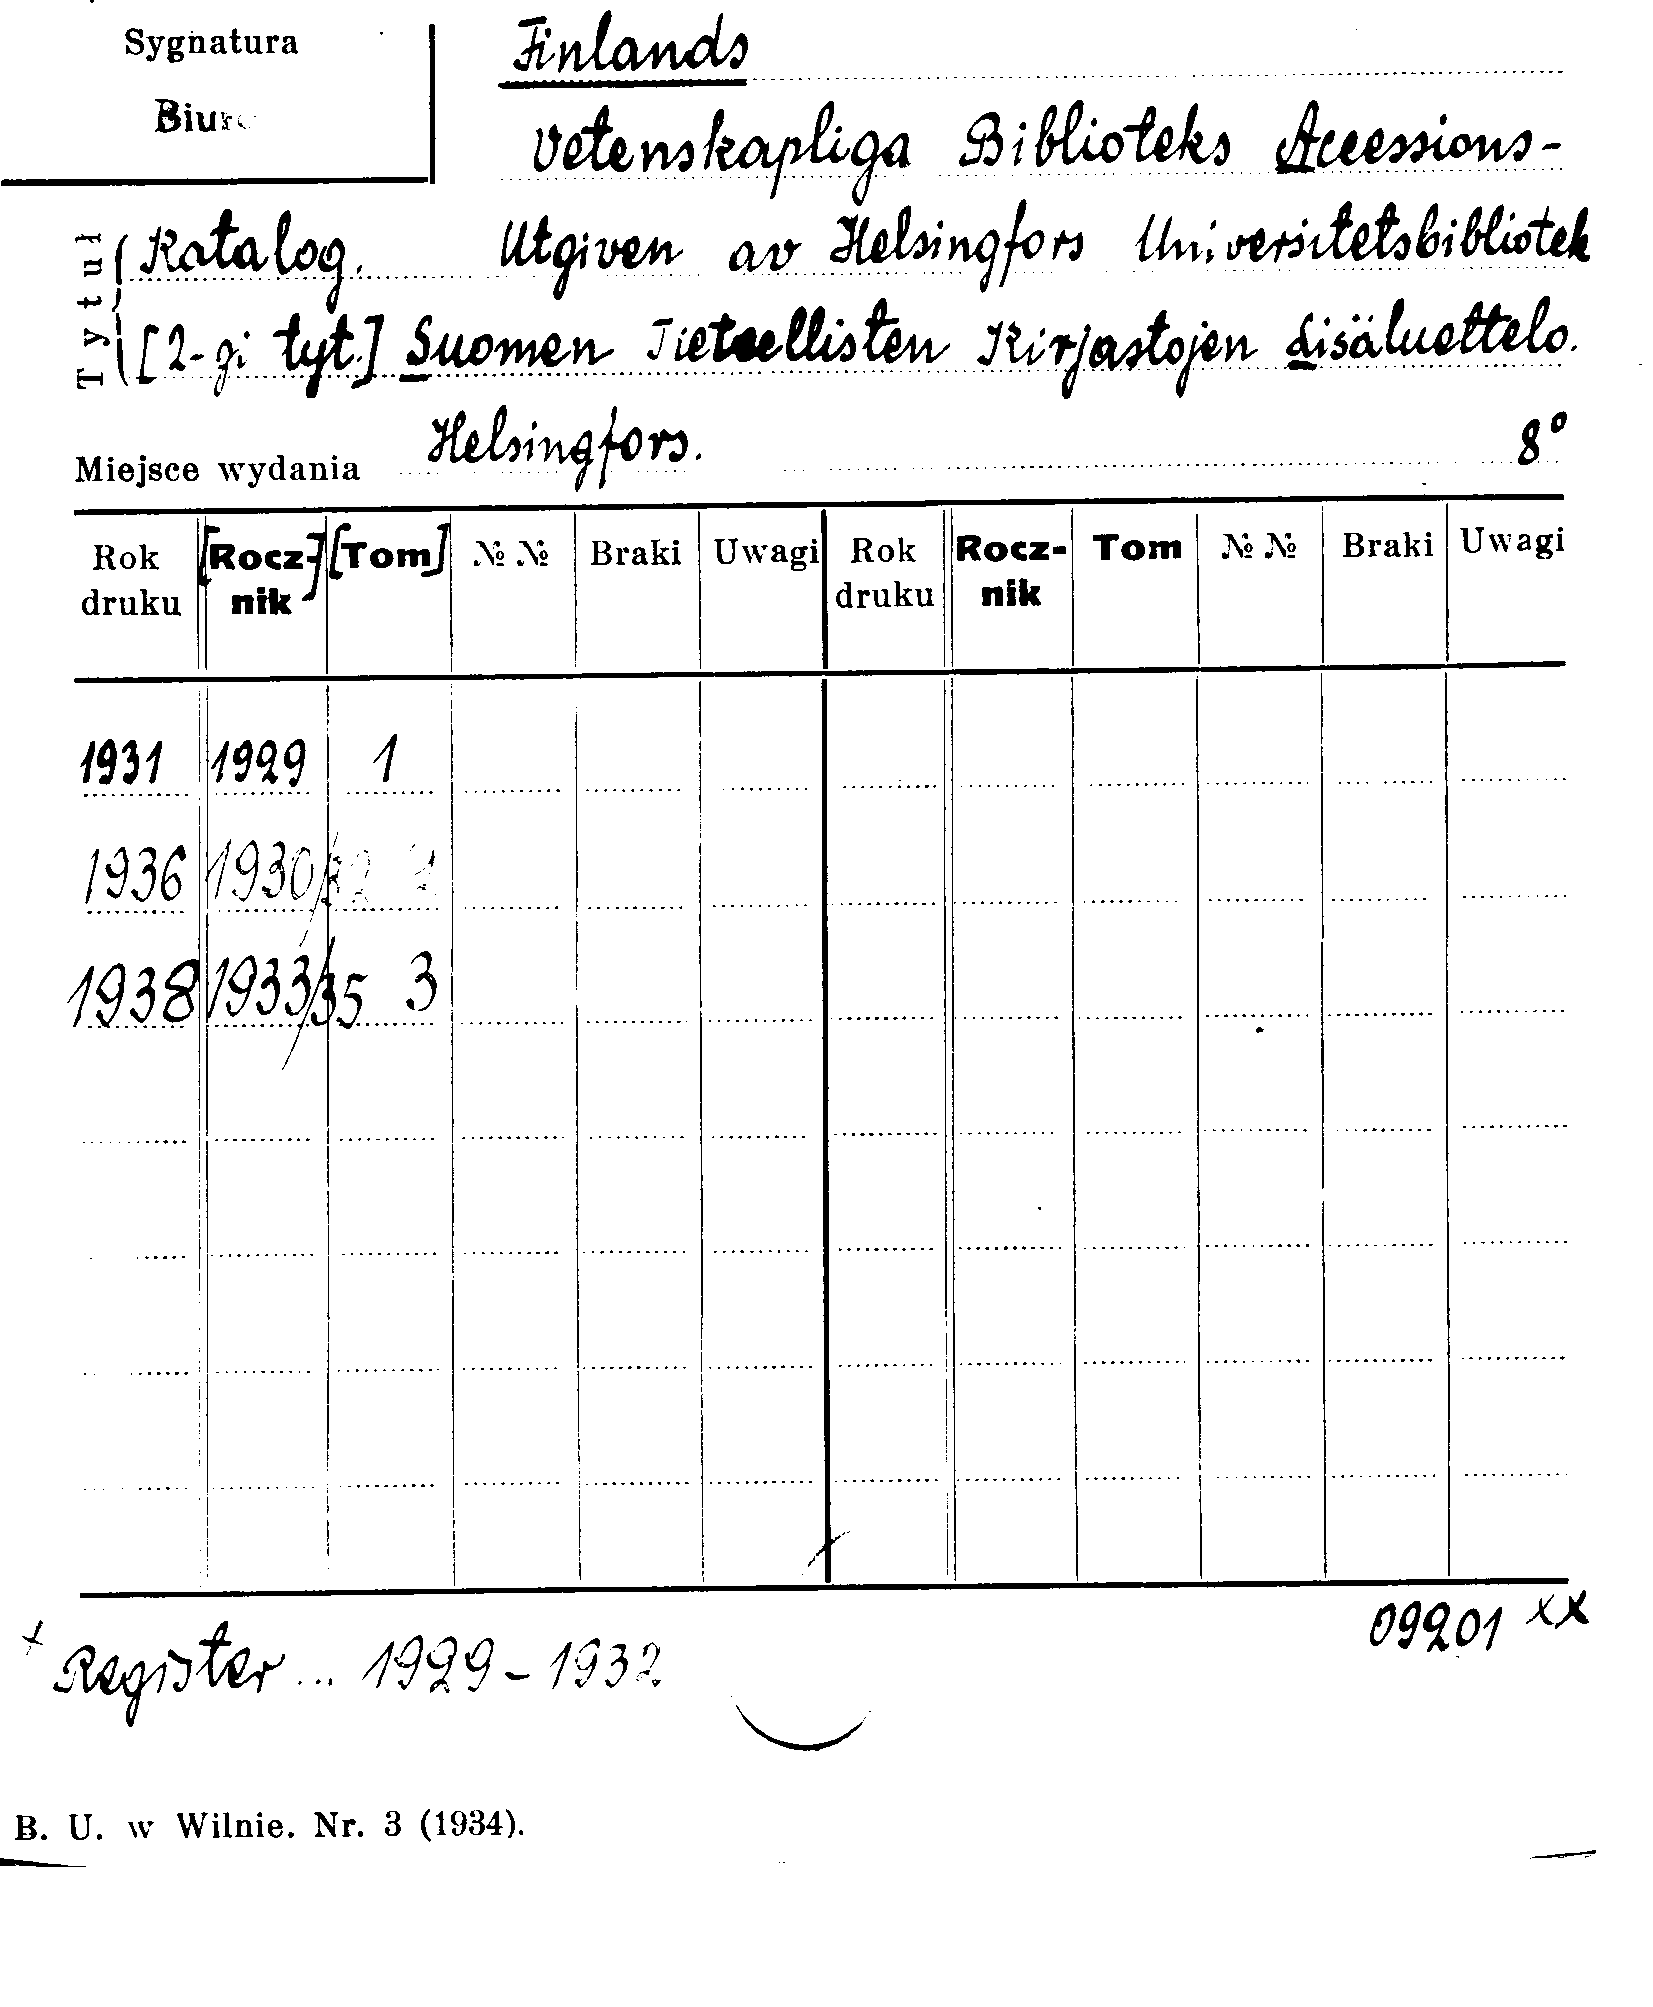 Sygnatura
Biuro
Finlands
Vetenskapliga Biblioteks Accessions-
Tytuł
Katalog. Utgiven av Helsingfors Universitetsbibliotek
[2-gi tyt.] Suomen Tieteellisten Kirjastojen Lisäluettelo.
Miejsce wydania Helsingfors. 8°
Rok druku [Rocz-nik] [Tom] № № Braki Uwagi Rok druku Rocz-nik Tom № № Braki Uwagi
1931 1929 1
1936 1930/32 2
1938 1933/35 3
09201 xx
x Register... 1929-1932
B. U. w Wilnie. Nr. 3 (1934).